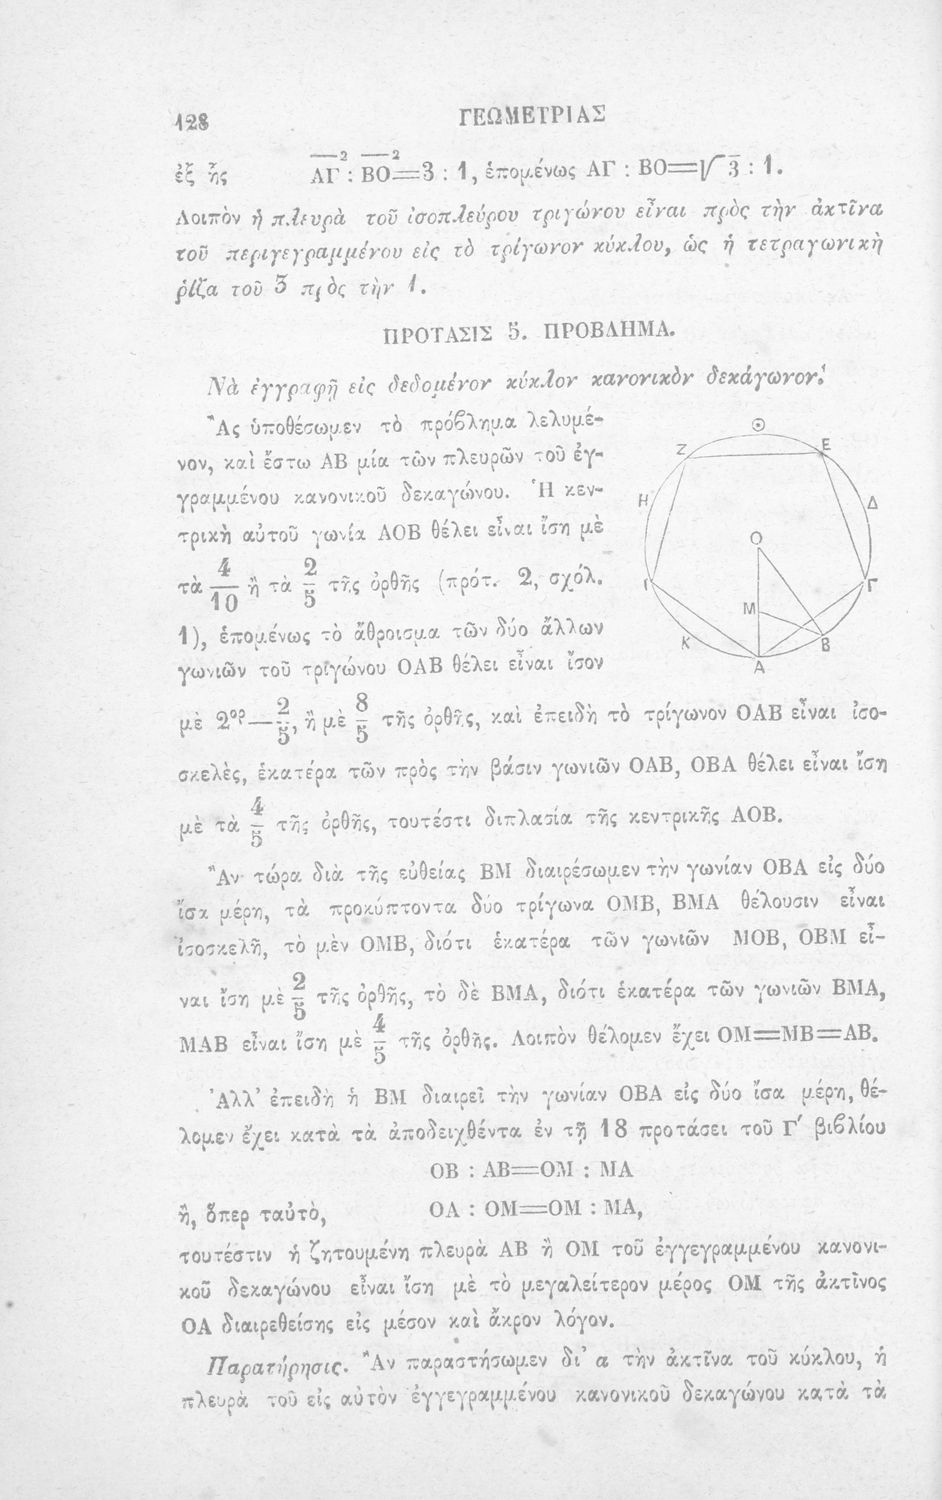 128 ΓΕΩΜΕΤΡΙΑΣ
ἐξ ἧς ΑΓ² : ΒΟ²=3 : 1, ἑπομένως ΑΓ : ΒΟ=√3 : 1.
Λοιπὸν ἡ πλευρὰ τοῦ ἰσοπλεύρου τριγώνου εἶναι πρὸς τὴν ἀκτῖνα
τοῦ περιγεγραμμένου εἰς τὸ τρίγωνον κύκλου, ὡς ἡ τετραγωνικὴ
ῥίζα τοῦ 3 πρὸς τὴν 1.
ΠΡΟΤΑΣΙΣ 5. ΠΡΟΒΛΗΜΑ.
Νὰ ἐγγραφῇ εἰς δεδομένον κύκλον κανονικὸν δεκάγωνον.
Ἂς ὑποθέσωμεν τὸ πρόβλημα λελυμέ-
νον, καὶ ἔστω ΑΒ μία τῶν πλευρῶν τοῦ ἐγ-
γραμμένου κανονικοῦ δεκαγώνου. Ἡ κεν-
τρικὴ αὐτοῦ γωνία ΑΟΒ θέλει εἶναι ἴση μὲ
τὰ 4/10 ἢ τὰ 2/5 τῆς ὀρθῆς (πρότ. 2, σχόλ.
1), ἑπομένως τὸ ἄθροισμα τῶν δύο ἄλλων
γωνιῶν τοῦ τριγώνου ΟΑΒ θέλει εἶναι ἴσον
Θ
Ζ Ε
Η Δ
Ο
Ι Γ
Μ
Κ Β
Α
μὲ 2ορ—2/5, ἢ μὲ 8/5 τῆς ὀρθῆς, καὶ ἐπειδὴ τὸ τρίγωνον ΟΑΒ εἶναι ἰσο-
σκελὲς, ἑκατέρα τῶν πρὸς τὴν βάσιν γωνιῶν ΟΑΒ, ΟΒΑ θέλει εἶναι ἴση
μὲ τὰ 4/5 τῆς ὀρθῆς, τουτέστι διπλασία τῆς κεντρικῆς ΑΟΒ.
Ἂν τώρα διὰ τῆς εὐθείας ΒΜ διαιρέσωμεν τὴν γωνίαν ΟΒΑ εἰς δύο
ἴσα μέρη, τὰ προκύπτοντα δύο τρίγωνα ΟΜΒ, ΒΜΑ θέλουσιν εἶναι
ἰσοσκελῆ, τὸ μὲν ΟΜΒ, διότι ἑκατέρα τῶν γωνιῶν ΜΟΒ, ΟΒΜ εἶ-
ναι ἴση μὲ 2/5 τῆς ὀρθῆς, τὸ δὲ ΒΜΑ, διότι ἑκατέρα τῶν γωνιῶν ΒΜΑ,
ΜΑΒ εἶναι ἴση μὲ 4/5 τῆς ὀρθῆς. Λοιπὸν θέλομεν ἔχει ΟΜ=ΜΒ=ΑΒ.
Ἀλλ' ἐπειδὴ ἡ ΒΜ διαιρεῖ τὴν γωνίαν ΟΒΑ εἰς δύο ἴσα μέρη, θέ-
λομεν ἔχει κατὰ τὰ ἀποδειχθέντα ἐν τῇ 18 προτάσει τοῦ Γ' βιβλίου
ΟΒ : ΑΒ=ΟΜ : ΜΑ
ἢ, ὅπερ ταὐτὸ, ΟΑ : ΟΜ=ΟΜ : ΜΑ,
τουτέστιν ἡ ζητουμένη πλευρὰ ΑΒ ἢ ΟΜ τοῦ ἐγγεγραμμένου κανονι-
κοῦ δεκαγώνου εἶναι ἴση μὲ τὸ μεγαλείτερον μέρος ΟΜ τῆς ἀκτῖνος
ΟΑ διαιρεθείσης εἰς μέσον καὶ ἄκρον λόγον.
Παρατήρησις. Ἂν παραστήσωμεν δι' α τὴν ἀκτῖνα τοῦ κύκλου, ἡ
πλευρὰ τοῦ εἰς αὐτὸν ἐγγεγραμμένου κανονικοῦ δεκαγώνου κατὰ τὰ